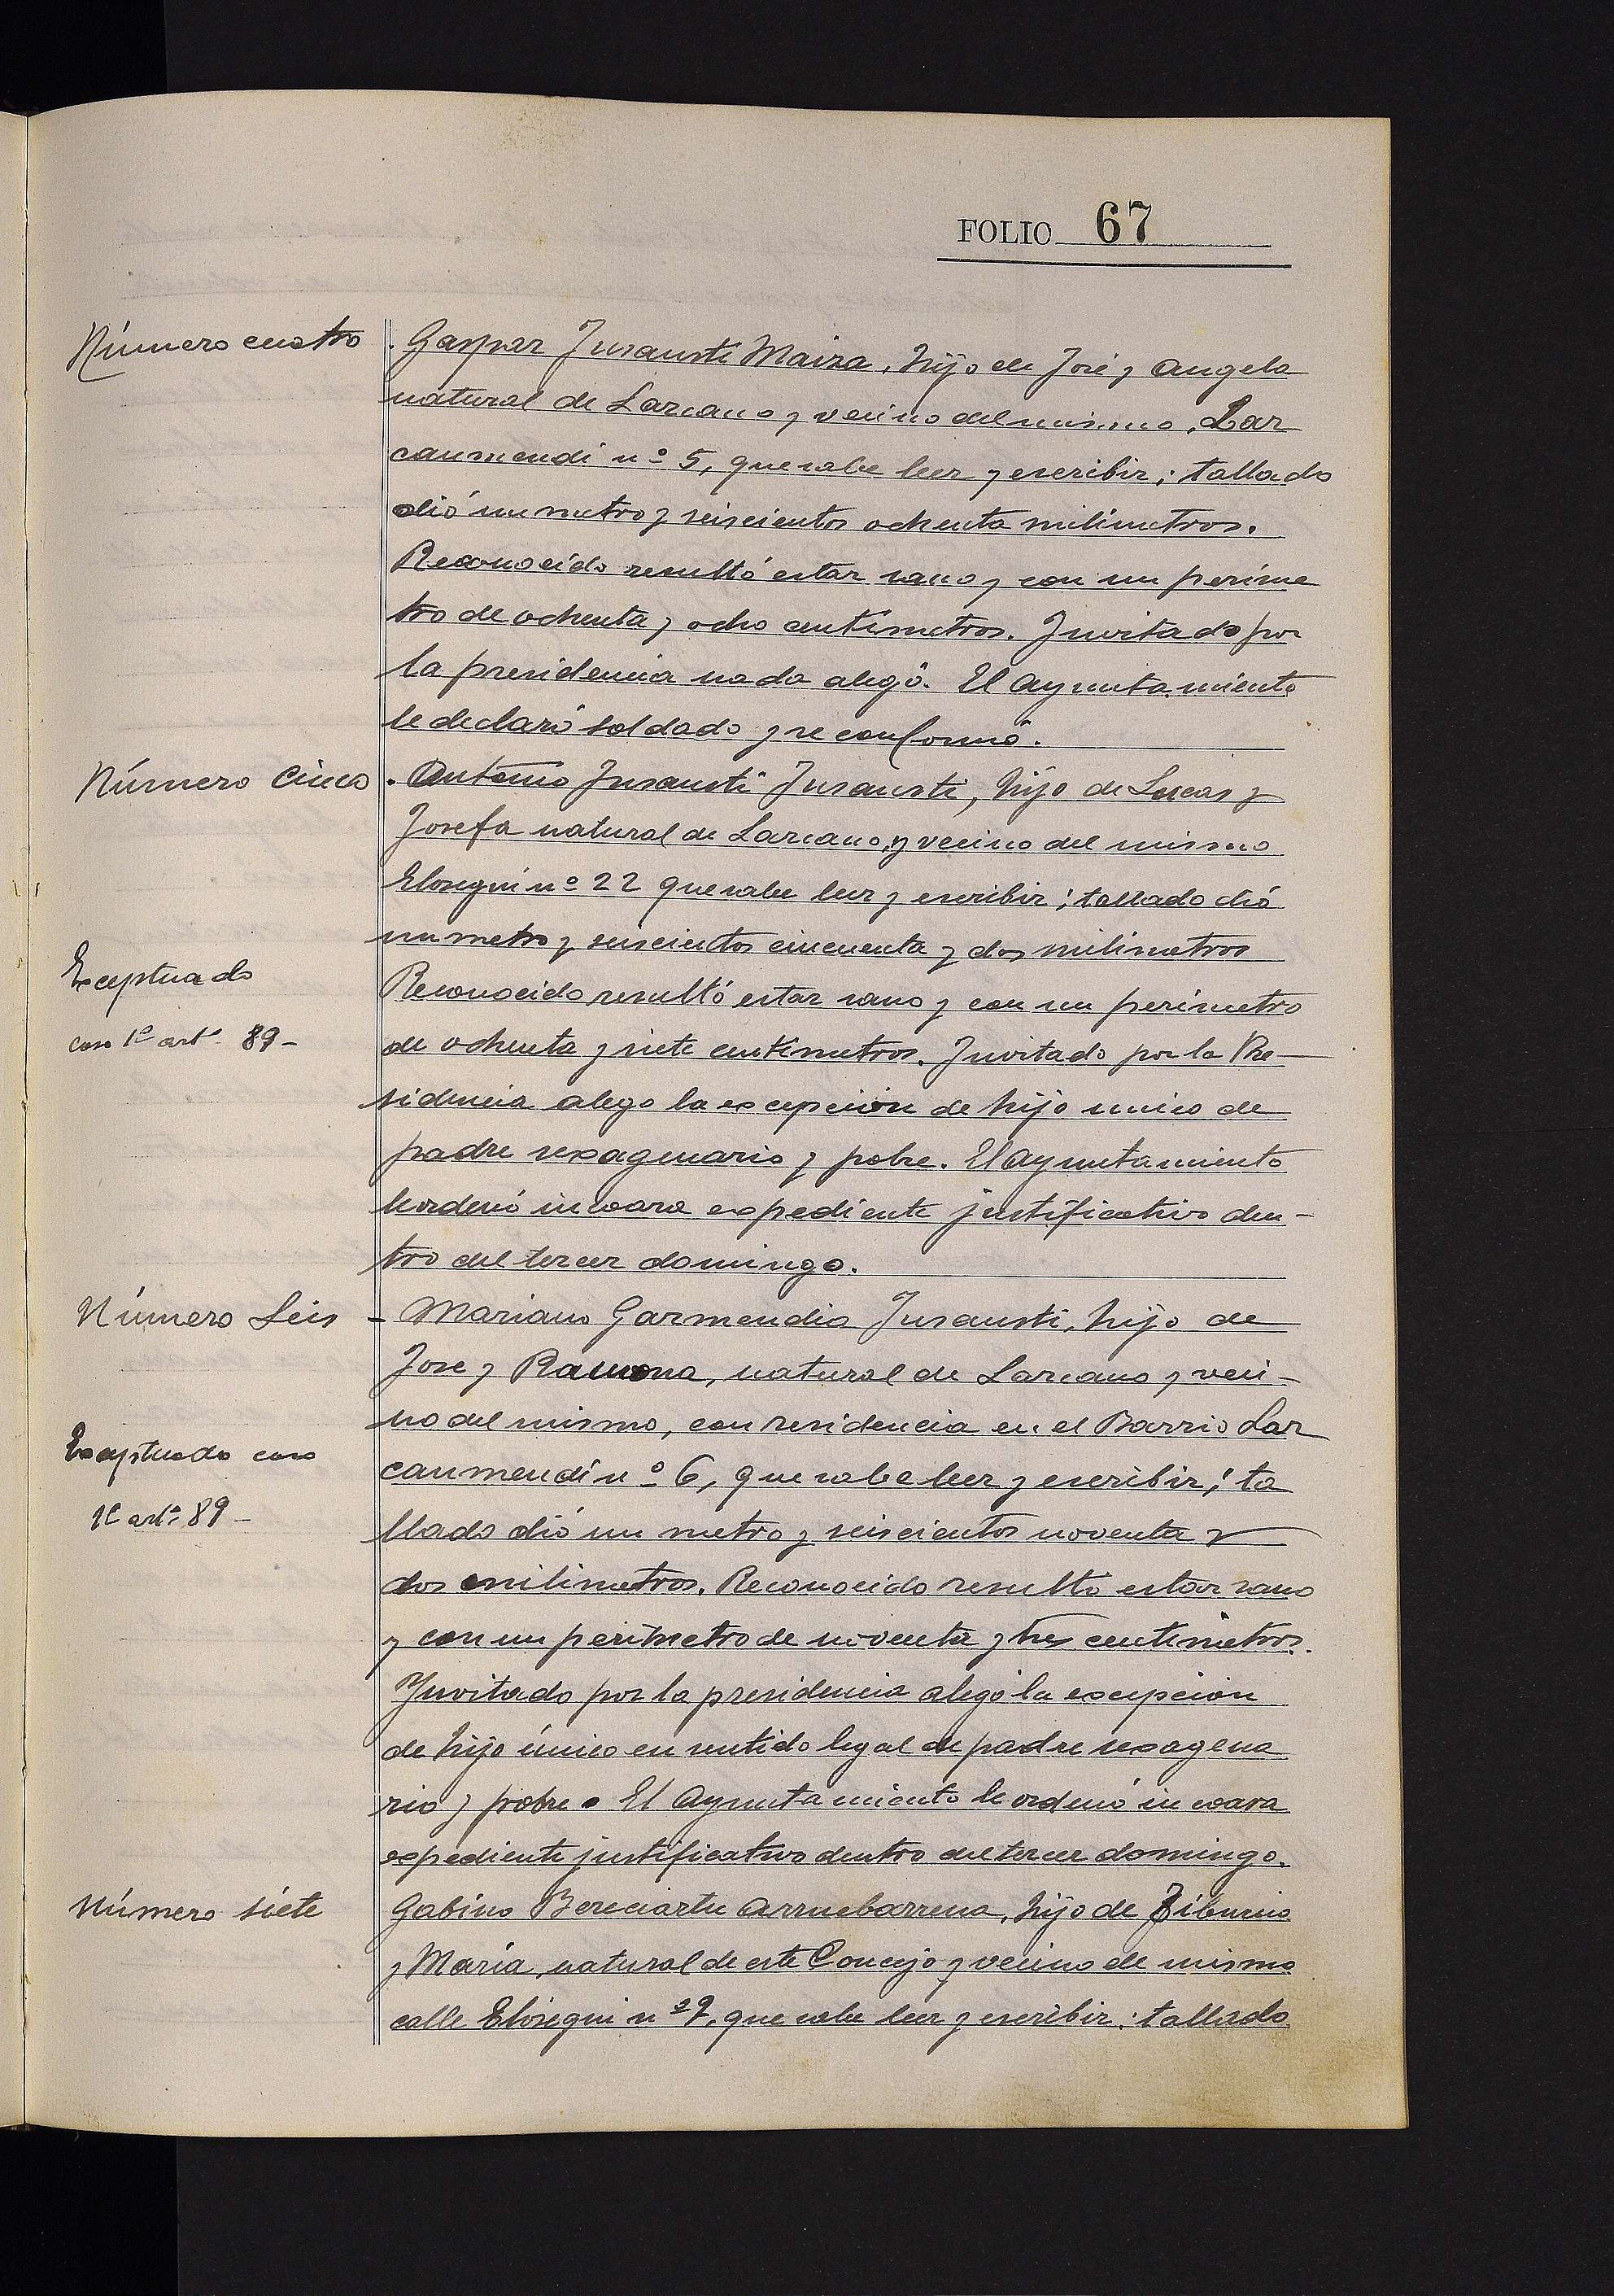 FOLIO 67
Número cuatro
. Gaspar Insausti Maiza, hijo de José y Angela
natural de Lazcano y vecino del mismo, Laz
canmendi nº 5, que sabe leer y escribir; tallado
dió un metro y seiscientos ochenta milimetros.
Reconocido resultó estar sano y con un perime
tro de ochenta y ocho centimetros. Invitado por
la presidencia nada alegó. El Ayuntamiento
le declaró soldado y se conformó.
Número Cinco
. Antonio Insausti Insausti, hijo de Lucas y
Josefa natural de Lazcano, y vecino del mismo
Elosegui nº 22 que sabe leer y escribir; tallado dió
un metro y seiscientos cincuenta y dos milimetros
Exceptuado
caso 1º artº 89-
Reconocido resultó estar sano y con un perímetro
de ochenta y siete centimetros. Invitado por la Pre-
sidencia alego la excepción de hijo unico de
padre sexagenario y pobre. El Ayuntamiento
le ordenó incoara expediente justificativo den-
tro del tercer domingo.
Número Seis
- Mariano Garmendia Insausti, hijo de
Jose y Ramona, natural de Lazcano y veci-
no del mismo, con residencia en el Barrio Laz
canmendi nº 6, que sabe leer y escribir; ta
Exceptuado caso
1º artº 89-
llado dió un metro y seiscientos noventa y
dos milimetros. Reconocido resulto estar sano
y con un perímetro de noventa y tres centimetros.
Invitado por la presidencia alegó la excepcion
de hijo único en sentido legal de padre sexagena
rio y pobre. El Ayuntamiento le ordenó incoara
expediente justificativo dentro del tercer domingo.
Número siete
Gabino Bereciartu Arruebarrena, hijo de Tiburcio
y María, natural de este Concejo y vecino de mismo
calle Elosegui nº 9, que sabe leer y escribir; tallado